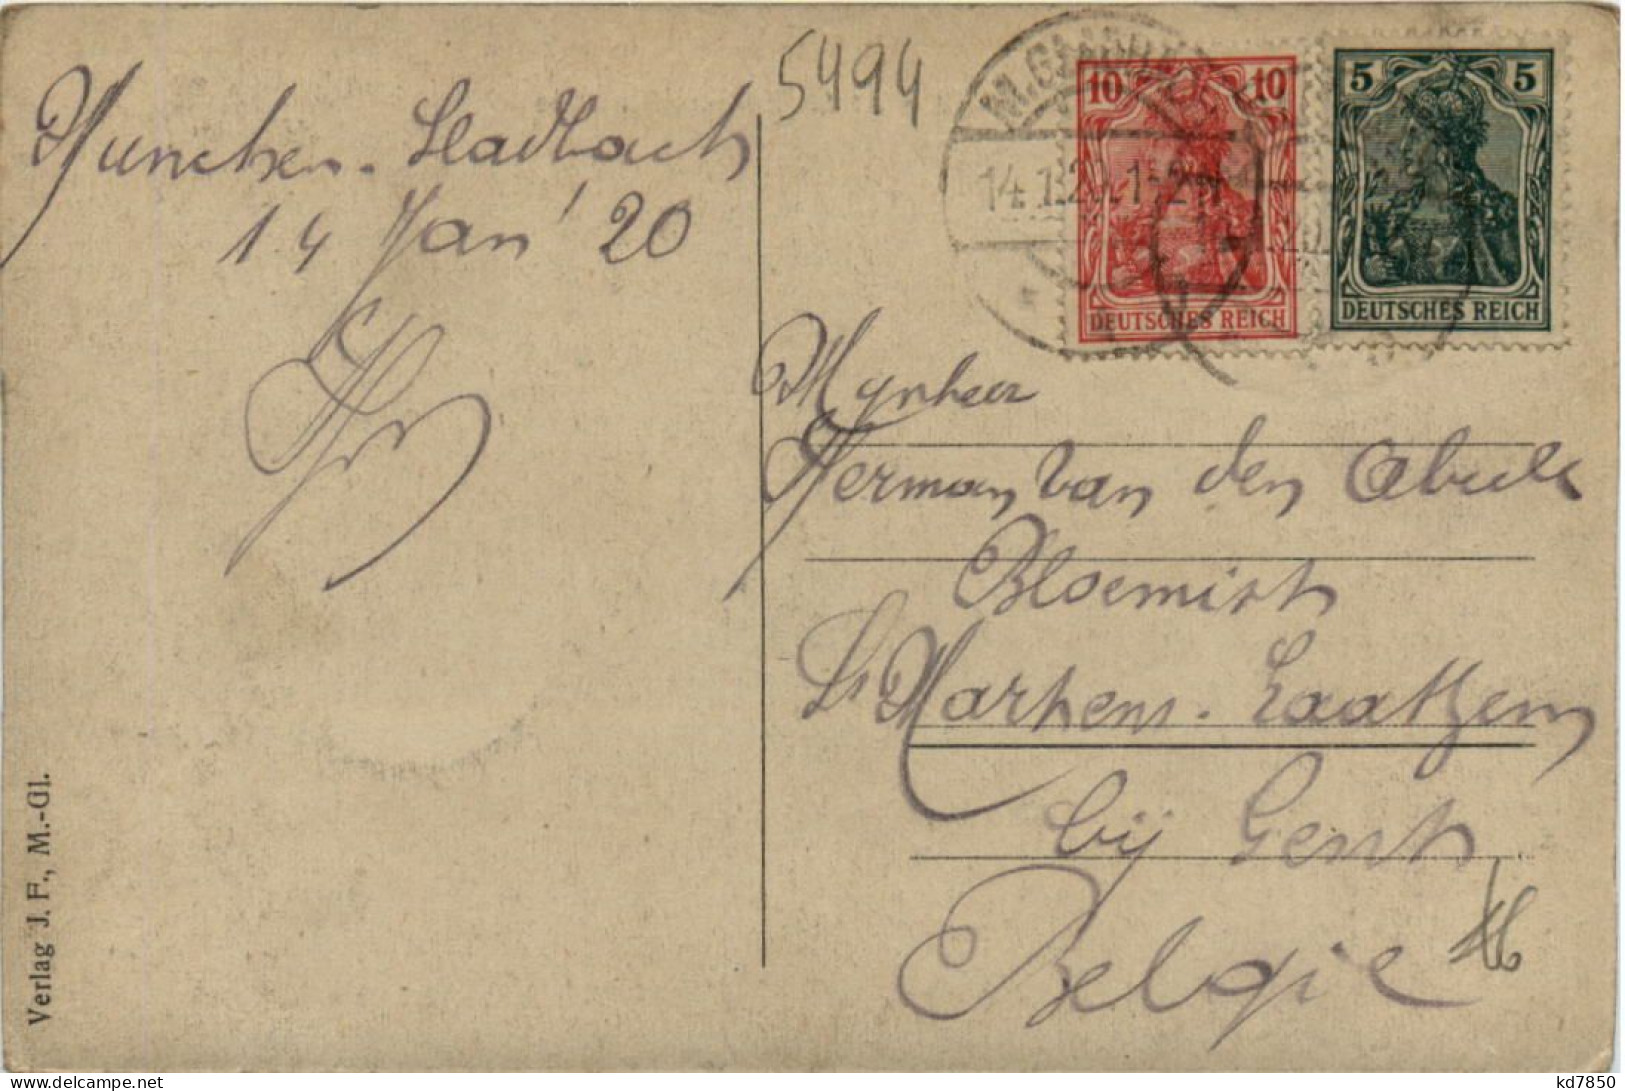 5494
Munchen-Gladbach
14 Jan '20
M.GLADBACH
14.1.20.1
10 10
DEUTSCHES REICH
5 5
DEUTSCHES REICH
Mynheer
Herman van den Abeele
Bloemist
St Martens-Laathem
bij Gent
Belgie
Verlag J. F., M.-Gl.
kd7850